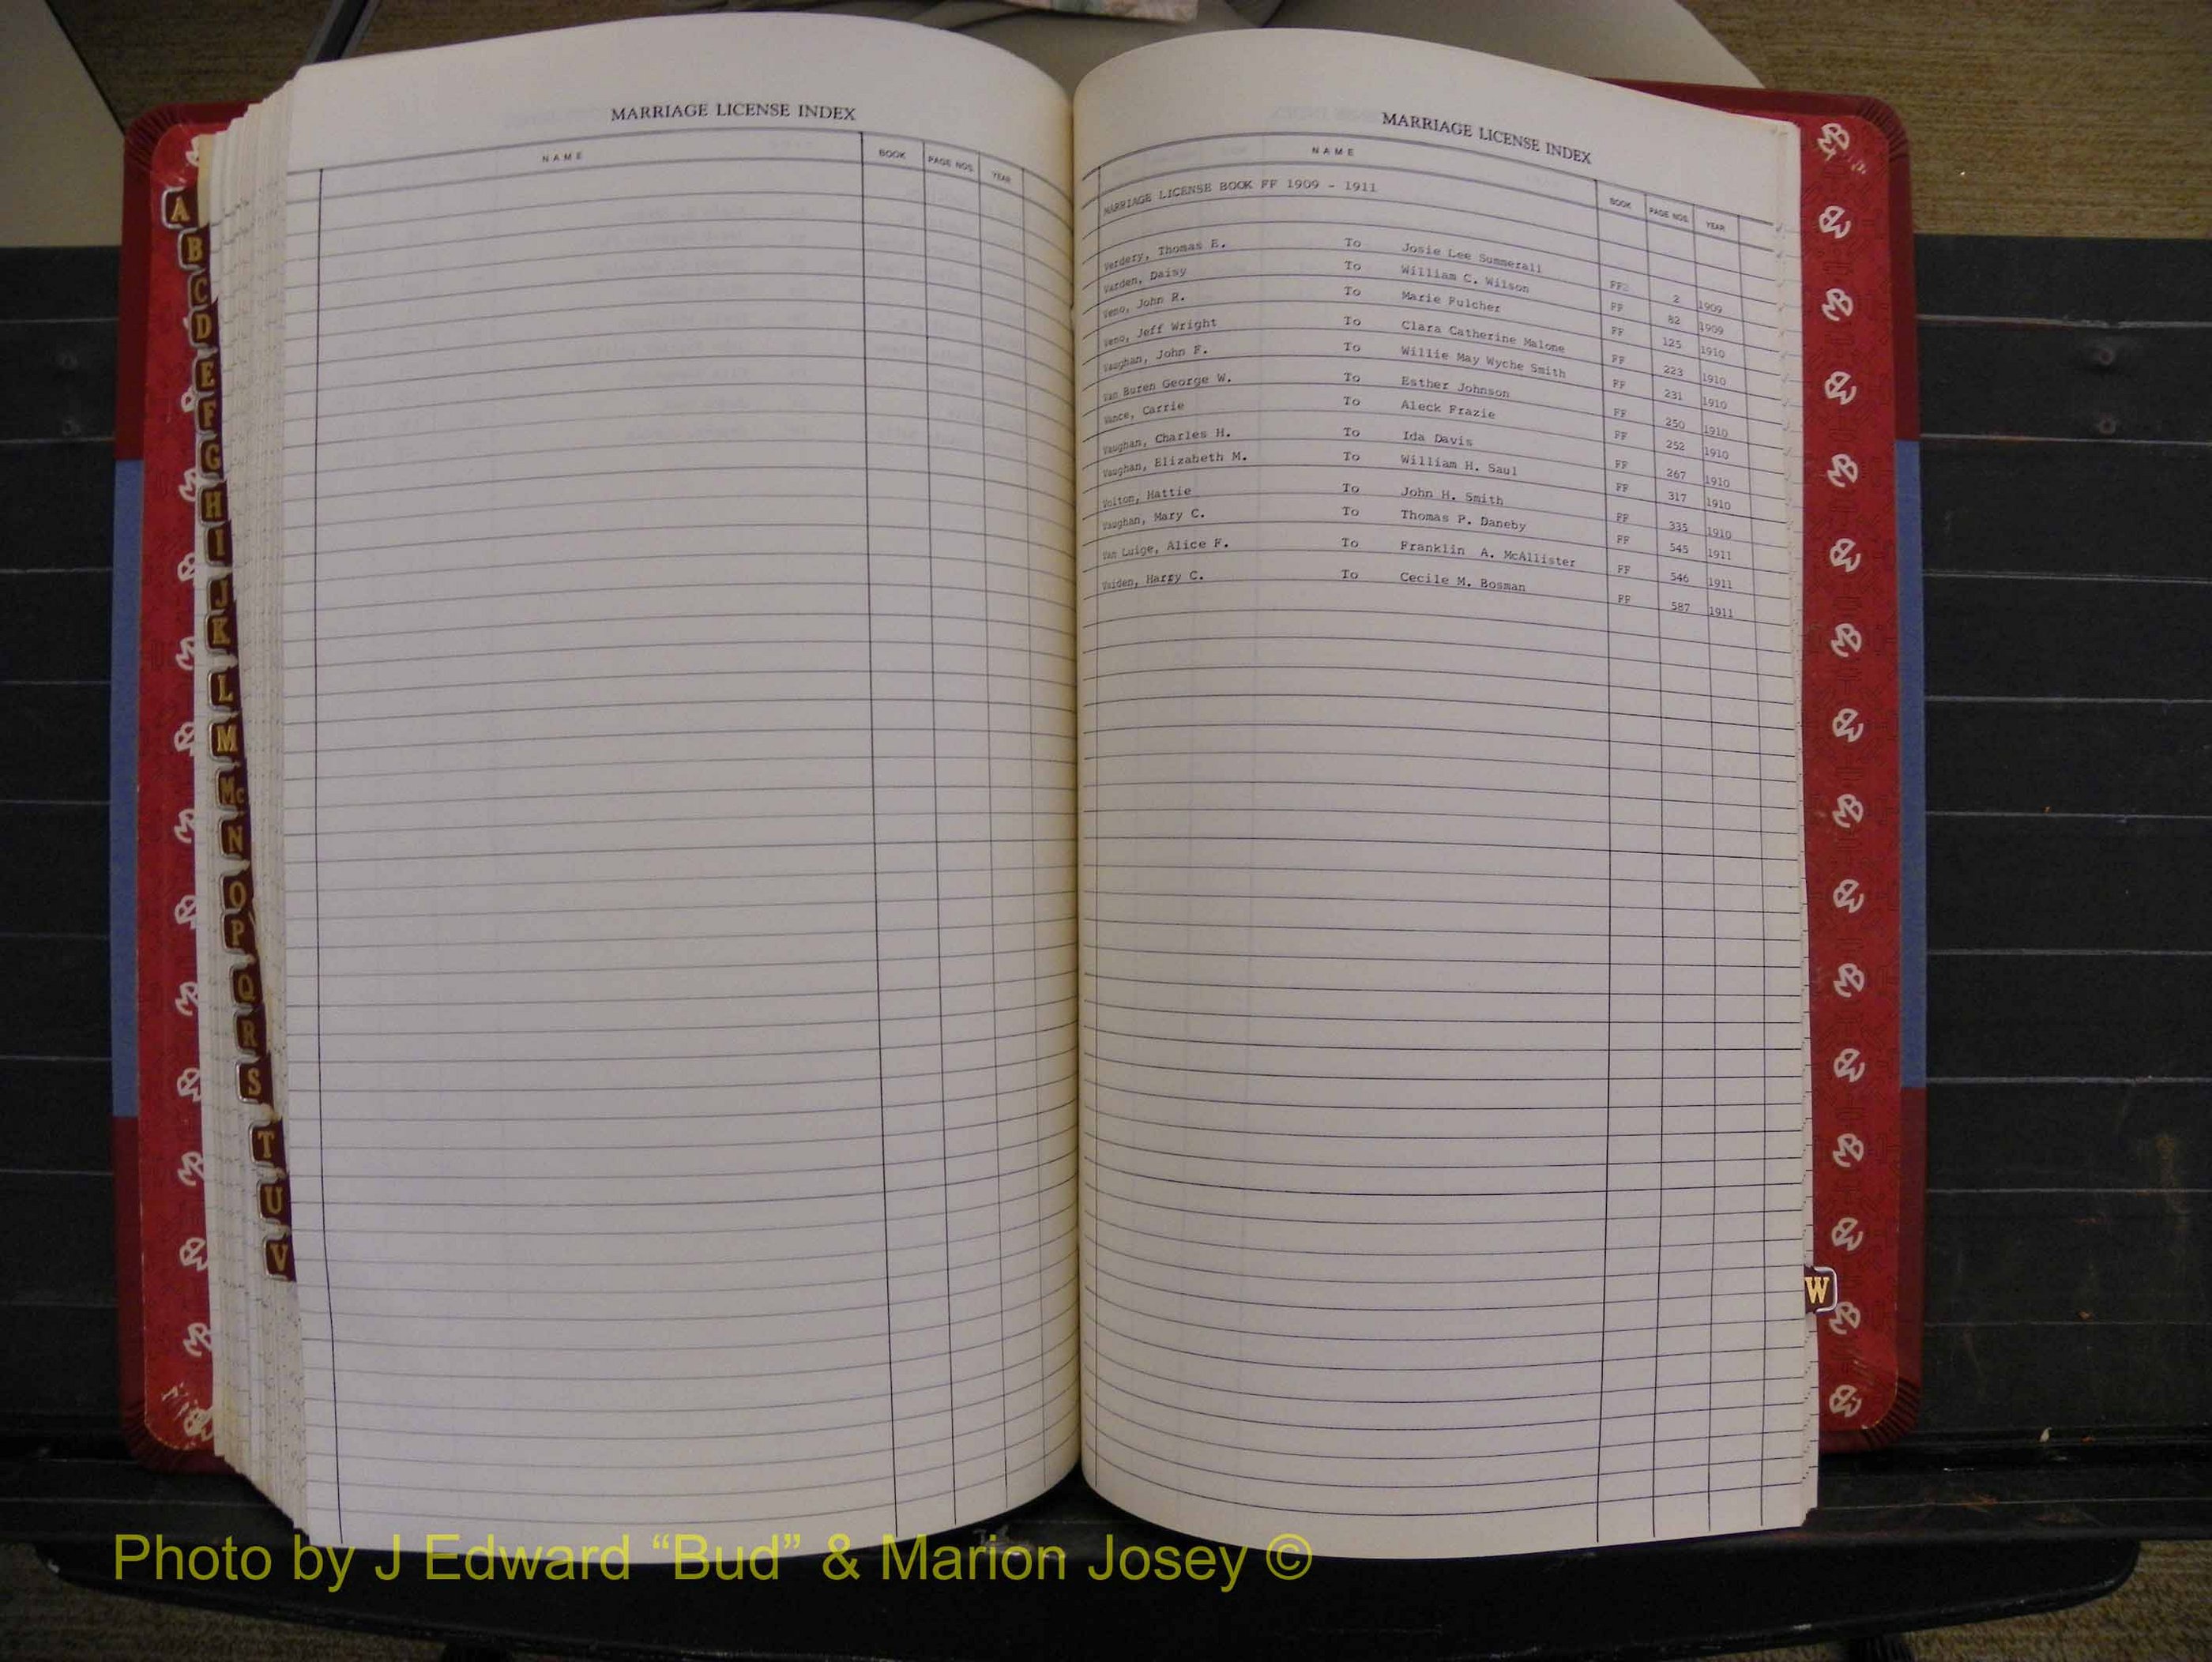 MARRIAGE LICENSE INDEX
NAME BOOK PAGE NOS. YEAR
A
B
C
D
E
F
G
H
I
J
K
L
M
Mc
N
O
P
Q
R
S
T
U
V
MARRIAGE LICENSE INDEX
NAME BOOK PAGE NOS. YEAR
MARRIAGE LICENSE BOOK FF 1909 - 1911
Verdery, Thomas E. To Josie Lee Summerall FF 2 1909
Varden, Daisy To William C. Wilson FF 82 1909
Veno, John R. To Marie Pulcher FF 125 1910
Veno, Jeff Wright To Clara Catherine Malone FF 223 1910
Vaughan, John F. To Willie May Wyche Smith FF 231 1910
Van Buren George W. To Esther Johnson FF 250 1910
Vance, Carrie To Aleck Frazie FF 252 1910
Vaughan, Charles H. To Ida Davis FF 267 1910
Vaughan, Elizabeth M. To William H. Saul FF 317 1910
Volton, Hattie To John H. Smith FF 335 1910
Vaughan, Mary C. To Thomas P. Daneby FF 545 1911
Van Luige, Alice F. To Franklin A. McAllister FF 546 1911
Vaiden, Harry C. To Cecile M. Bosman FF 587 1911
W
Photo by J Edward “Bud” & Marion Josey ©